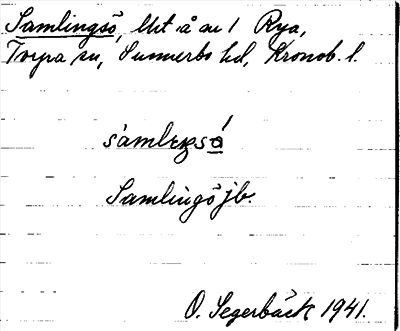 Samlingsö, lht å au 1 Rya,
Torpa sn, Sunnerbo hd, Kronob. l.
Samlingsö jb.
O. Segerbäck 1941.